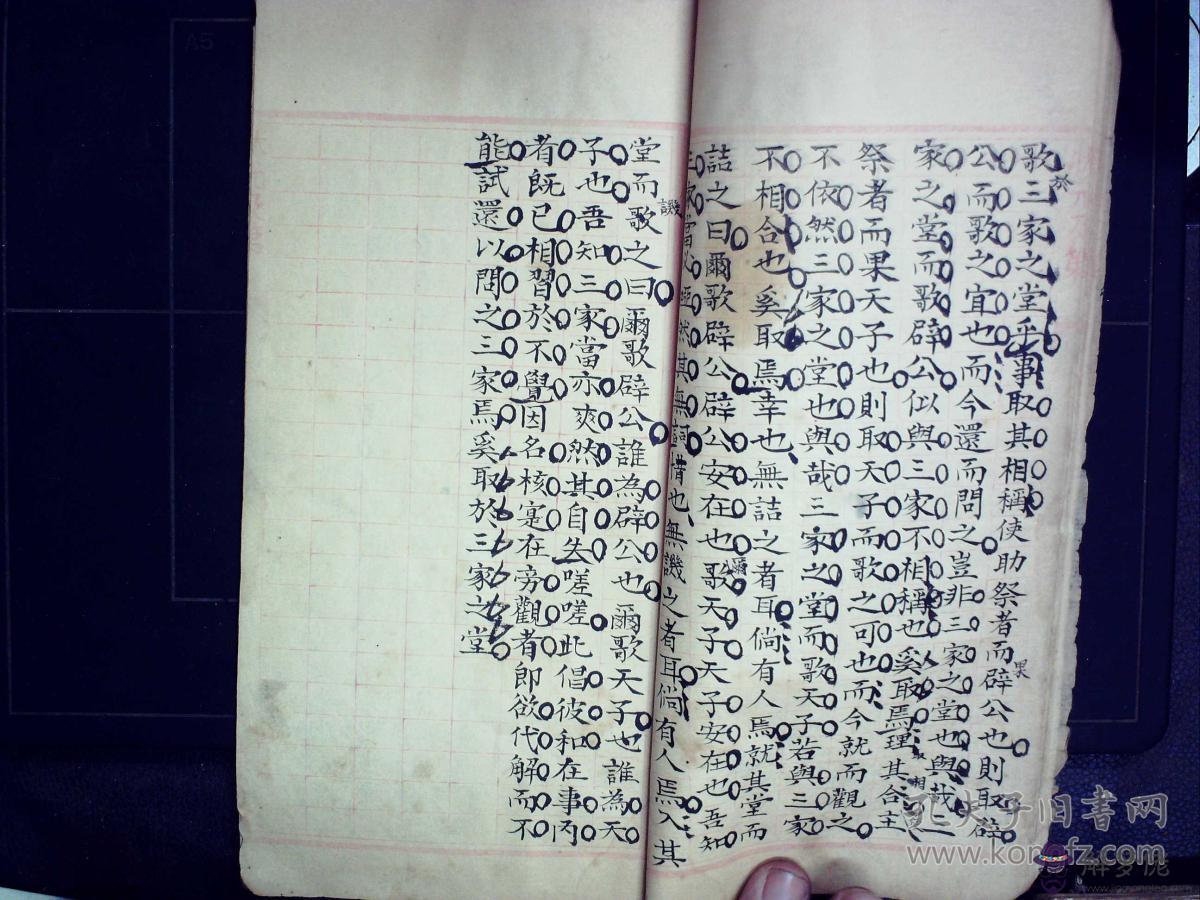 歌於三家之堂乎事取其相稱使助祭者而果辟公也則取辟
公而歌之宜也而今還而問之豈非三家之堂也與哉三
家之堂而歌辟公似與三家不相稱也奚取焉理其合主
祭者而果天子也則取天子而歌之可也而今就而觀之
不依然三家之堂也與哉三家之堂而歌天子若與三家
不相合也奚取焉幸也無詰之者耳倘有人焉就其堂而
詰之曰爾歌辟公辟公安在也爾歌天子天子安在也吾知
三家當必啞然其無詞惜也無譏之者耳倘有人焉入其
堂而譏歌之曰爾歌辟公誰為辟公也爾歌天子也誰為天
子也吾知三家當亦爽然其自失嗟嗟此倡彼和在事內
者既已相習於不覺因名核寔在旁觀者即欲代解而不
能試還以問之三家焉奚取於三家之堂
A5
孔夫子旧书网
www.kongfz.com
解梦佬